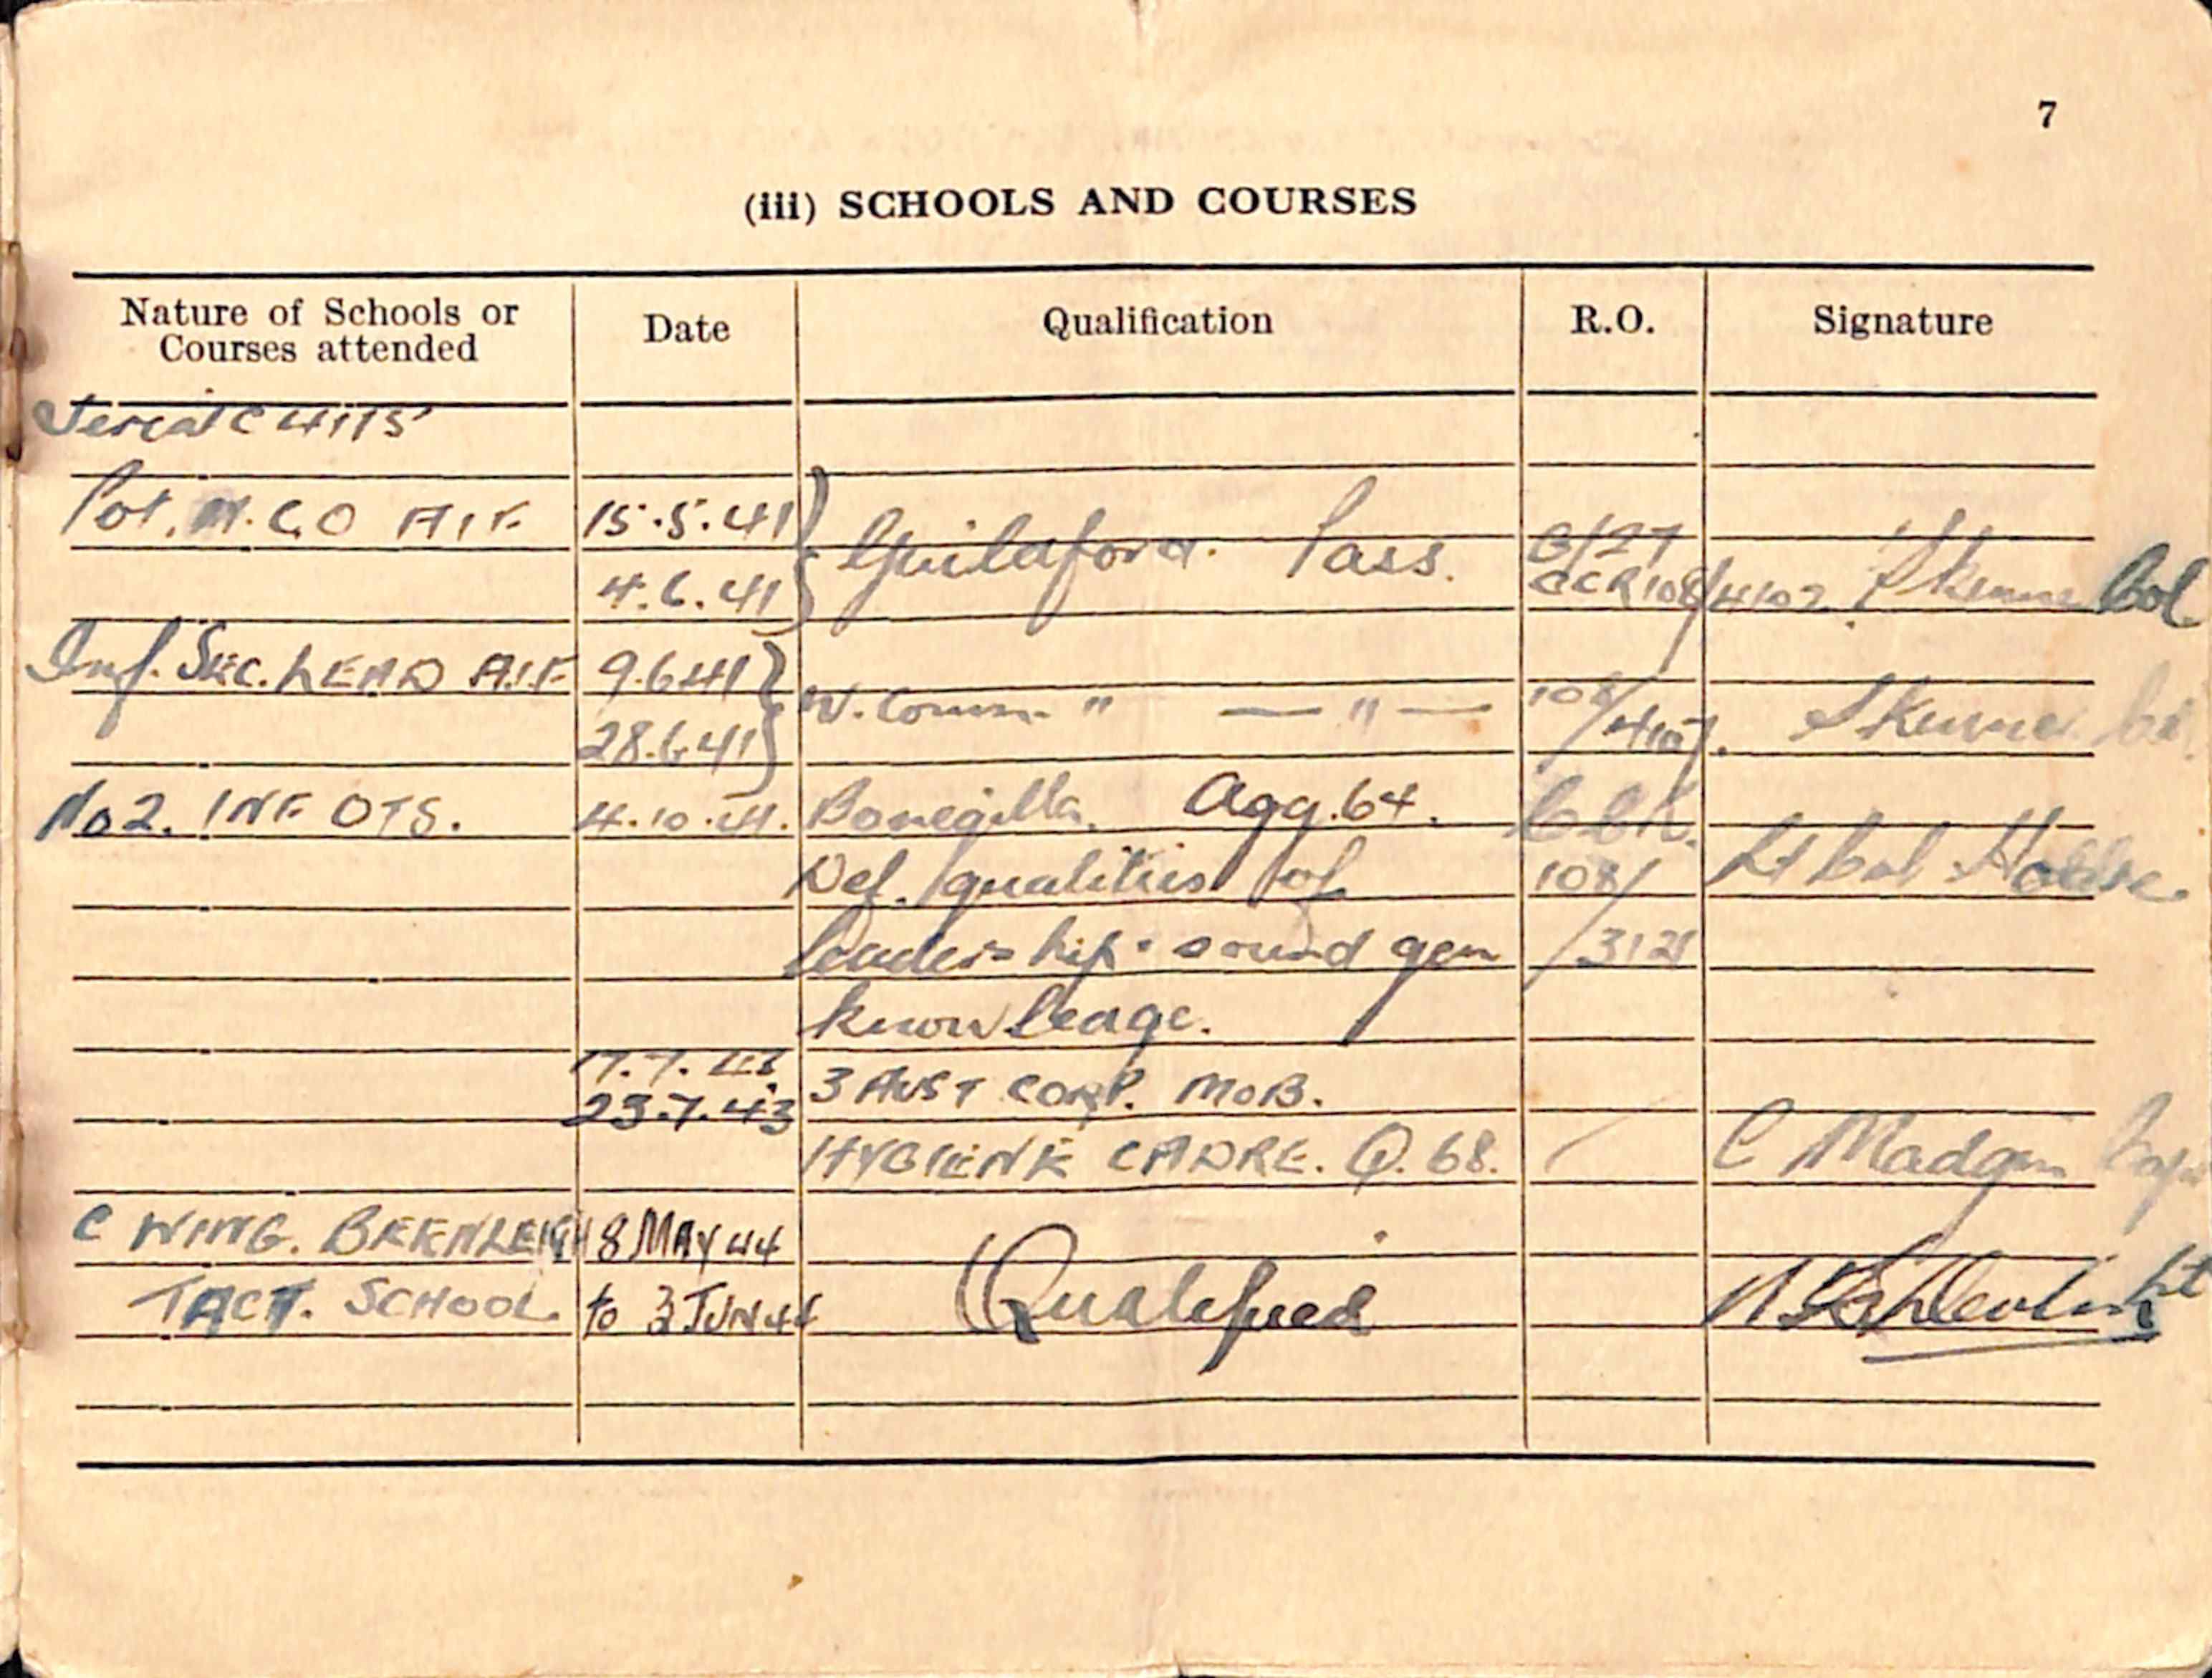 7
(iii) SCHOOLS AND COURSES
Nature of Schools or Courses attended Date Qualification R.O. Signature
Pot. N.C.O A.I.F. 15.5.41
Guildford. Pass. G/27
4.6.41 CCR108/4102 Col
Inf. SEC. LEAD A.I.F 9.6.41
W. Comm. " — " — 108/
28.6.41
No 2. INF OTS. 4.10.41. Bonegilla. Agg. 64.
Def. qualities of 108/ Lt Col
leadership. sound gen /3121
knowledge.
17.7.43
23.7.43 3 AUST CORP. MOB.
HYGIENE CADRE. Q. 68. C Madgin Capt
C WING. BEENLEIGH 8 MAY 44
TACT. SCHOOL to 3 JUN 44 Qualified Lt